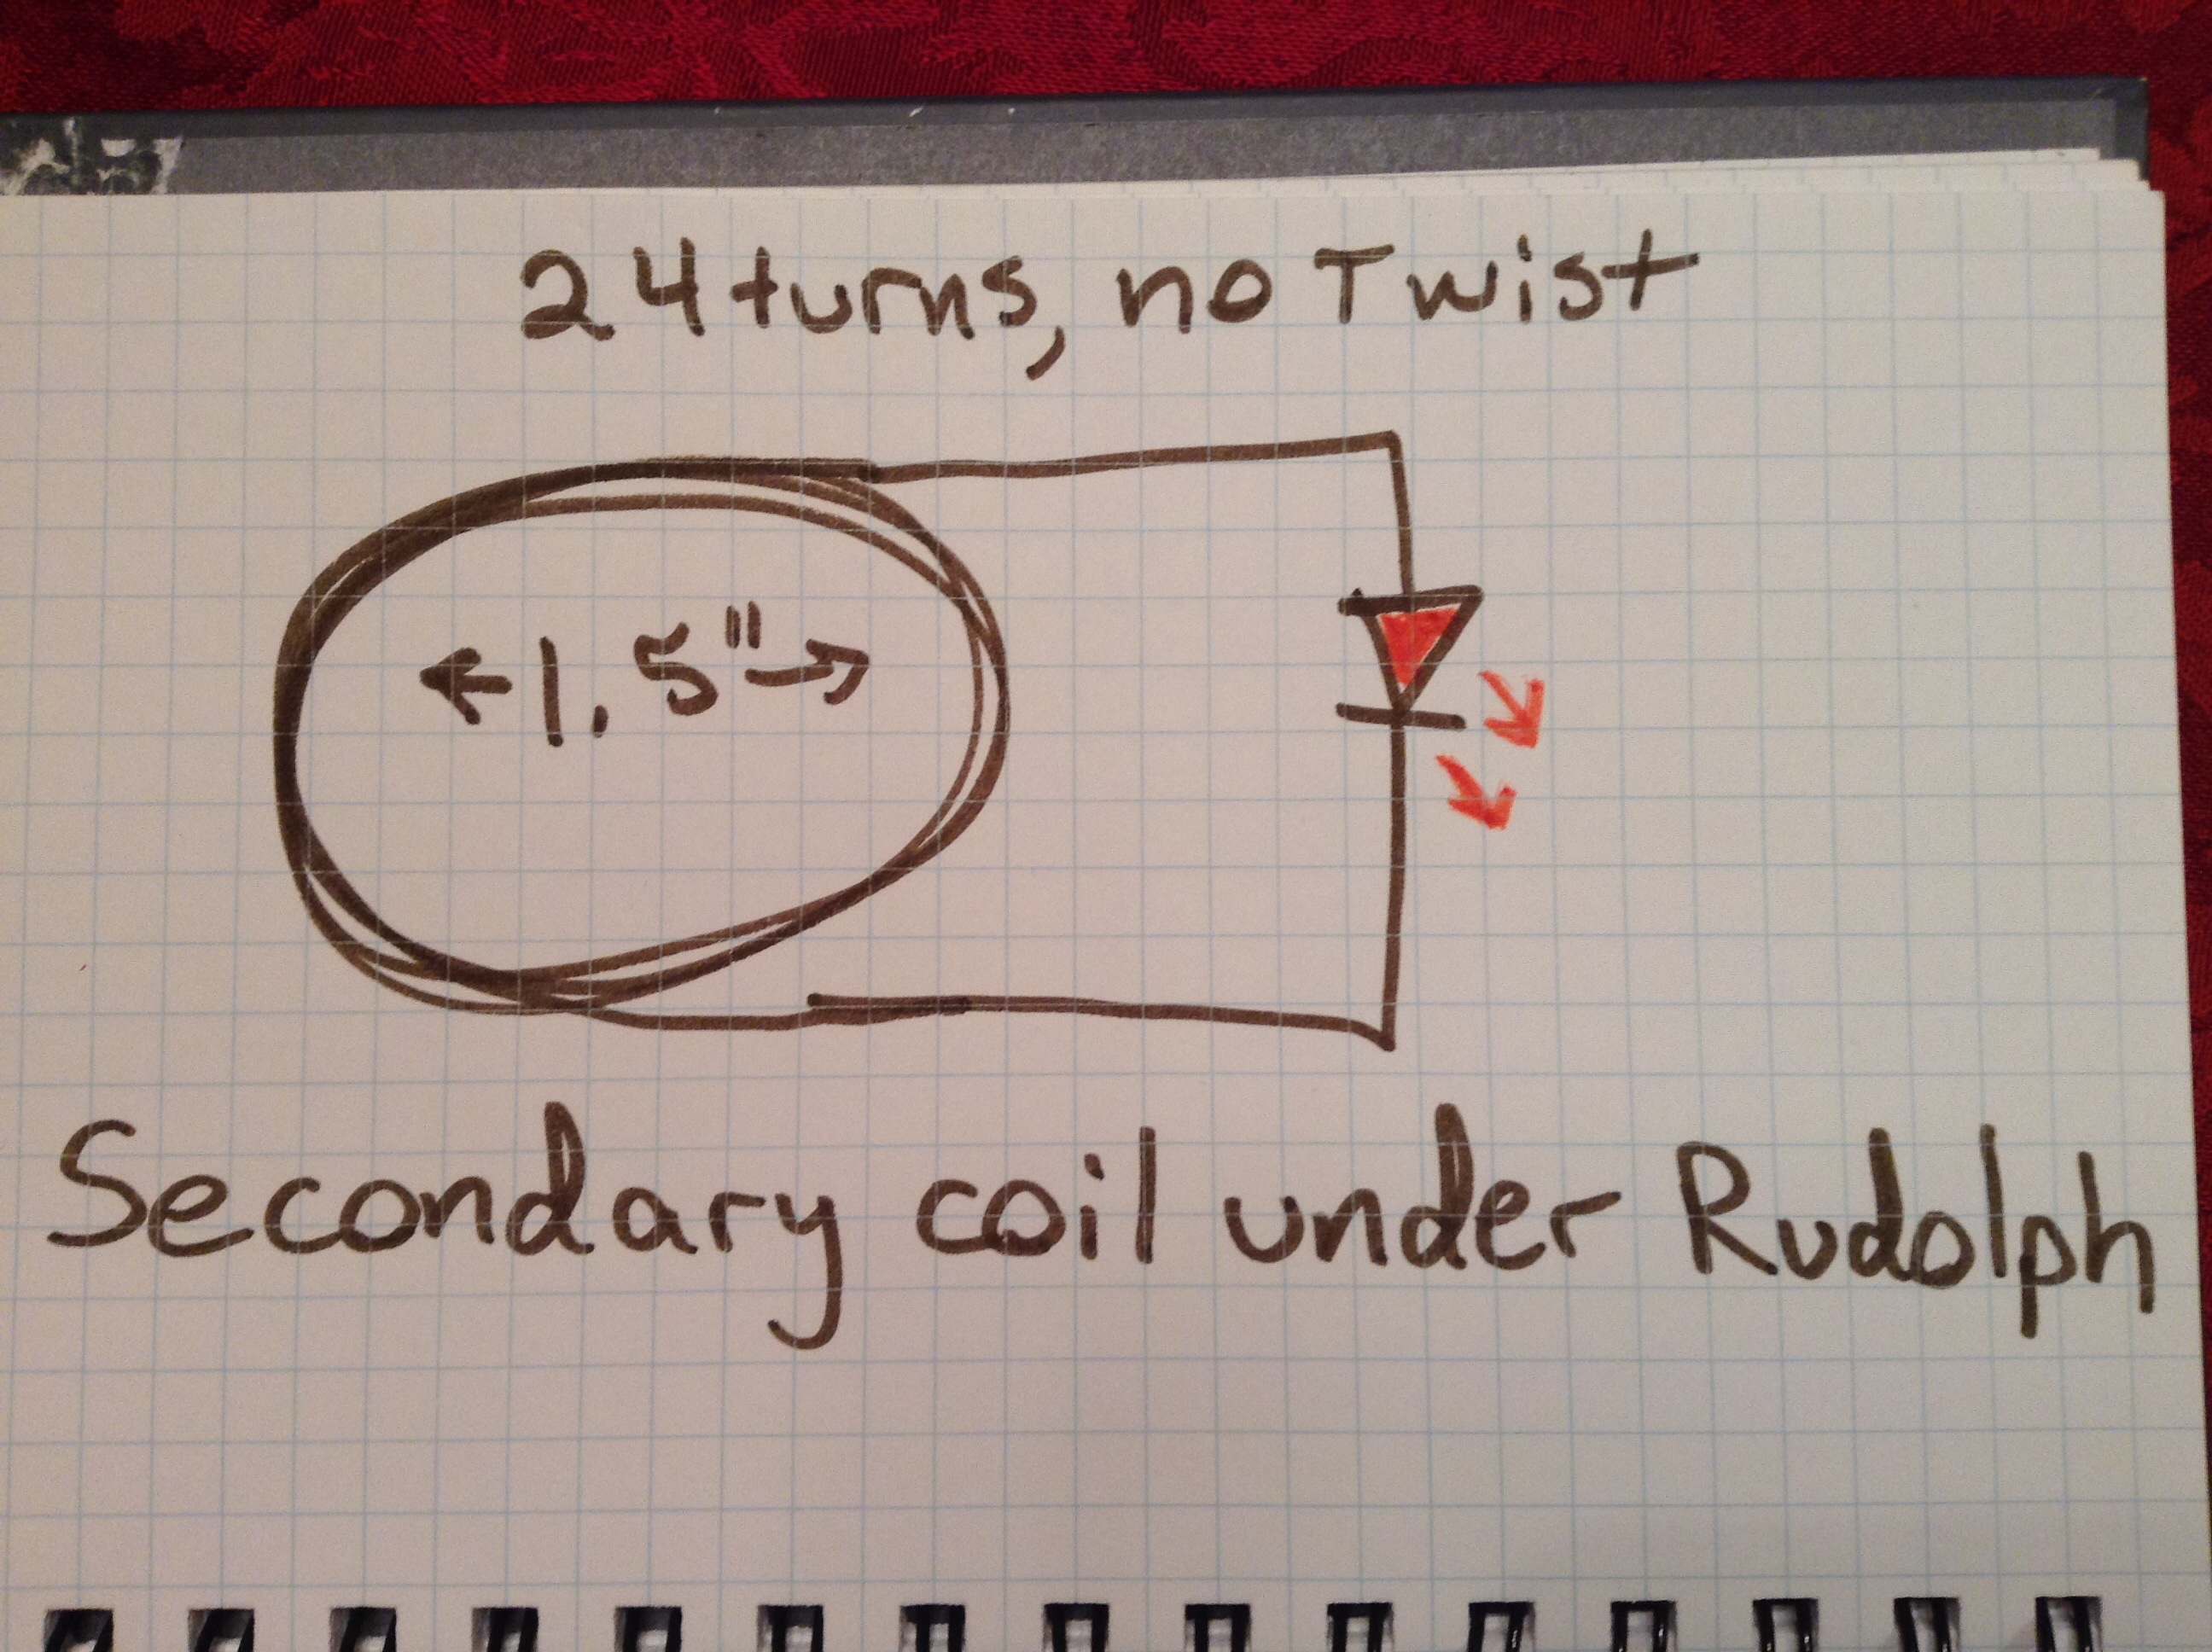 24 turns, no Twist
←1.5"→
Secondary coil under Rudolph